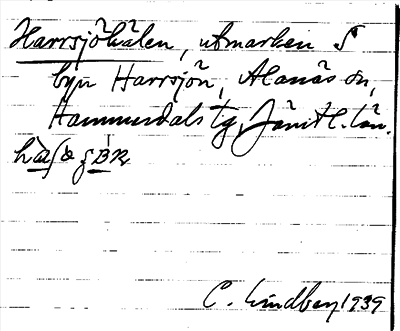 Harrsjökälen, utmarken S
byn Harrsjön, Alanäs sn,
Hammerdals tg, Jämtl. län.
C. Lindberg 1939